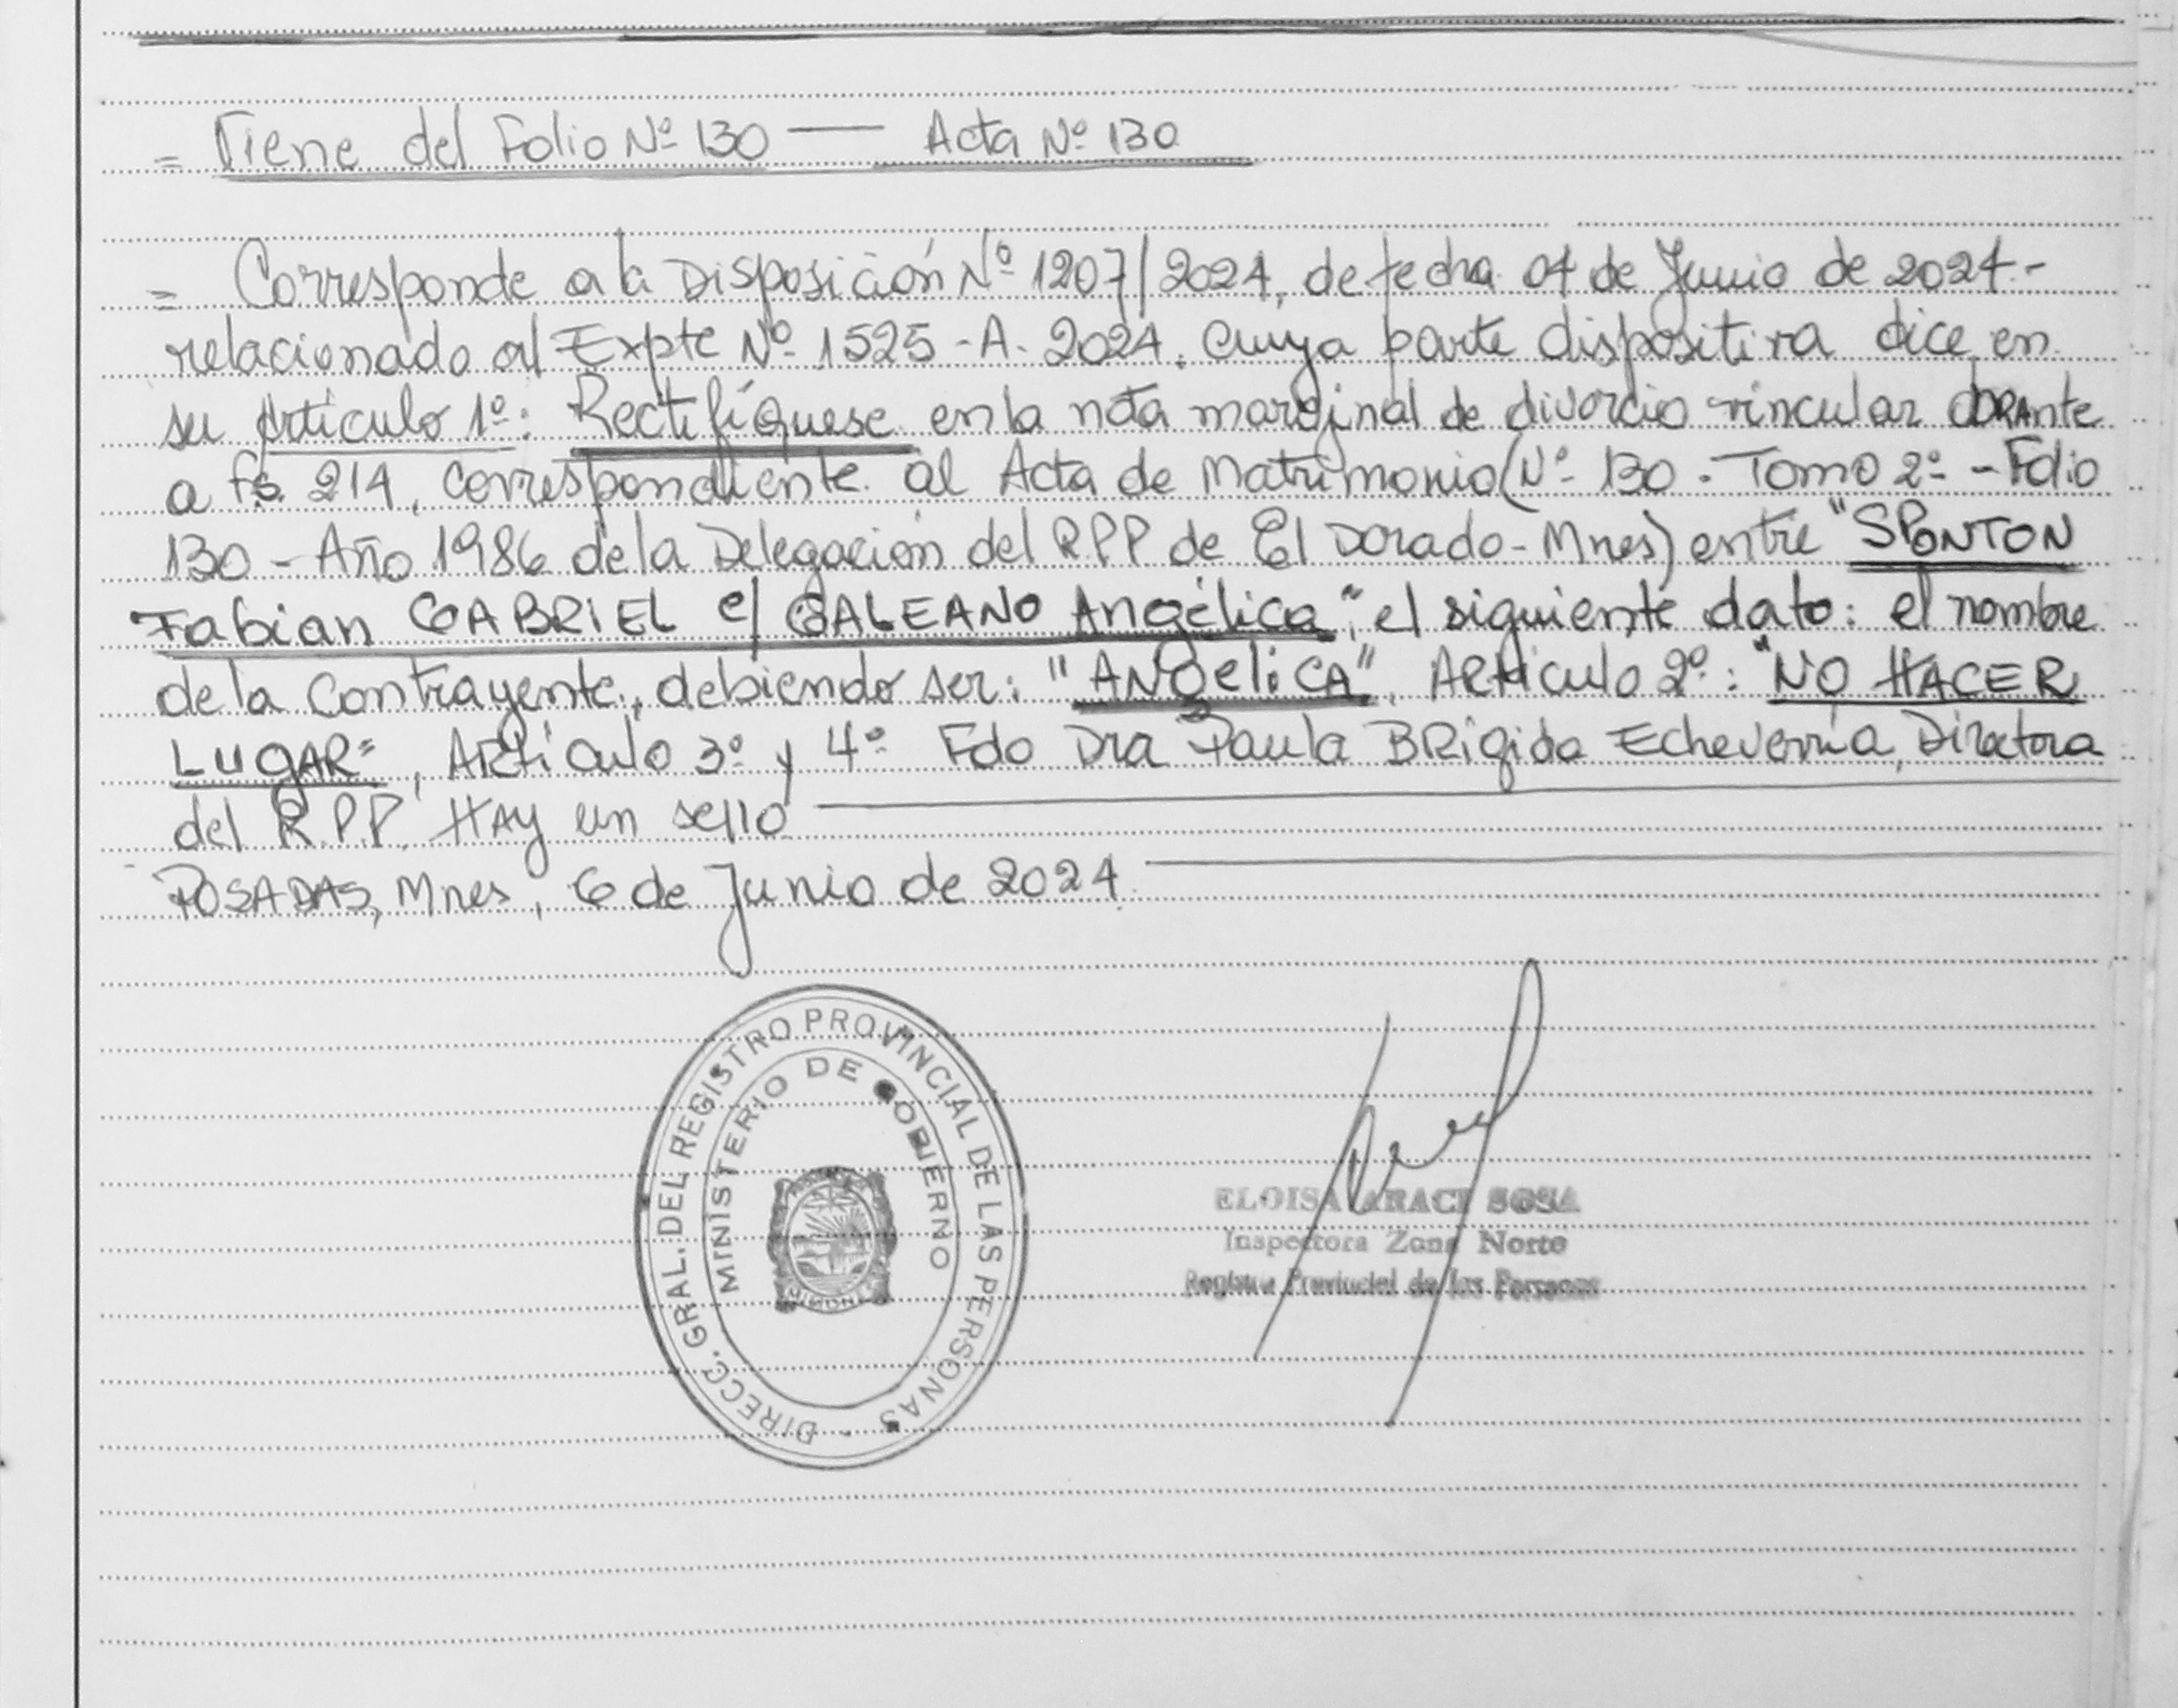 = Viene del Folio Nº 130 — Acta Nº 130
= Corresponde a la Disposición Nº 1207/2024, de fecha 04 de Junio de 2024.-
relacionado al Expte Nº 1525-A-2024, cuya parte dispositiva dice en
su Artículo 1º: Rectifíquese en la nota marginal de divorcio vincular obrante
a fs. 214, correspondiente al Acta de Matrimonio (Nº 130 - Tomo 2º - Folio
130 - Año 1986 de la Delegación del R.P.P de El Dorado - Mnes) entre "SPONTON
Fabian GABRIEL c/ GALEANO Angélica", el siguiente dato: el nombre
de la Contrayente, debiendo ser: "ANgeliCA", Artículo 2º: "NO HACER
LUgAR", Artículo 3º y 4º Fdo Dra Paula BRigida Echeverría, Directora
del R.P.P. HAy un sello
POSADAS, Mnes, 6 de Junio de 2024.
DIRECC. GRAL. DEL REGISTRO PROVINCIAL DE LAS PERSONAS -
MINISTERIO DE GOBIERNO
ELOISA ARACI SOSA
Inspectora Zona Norte
Registro Provincial de las Personas